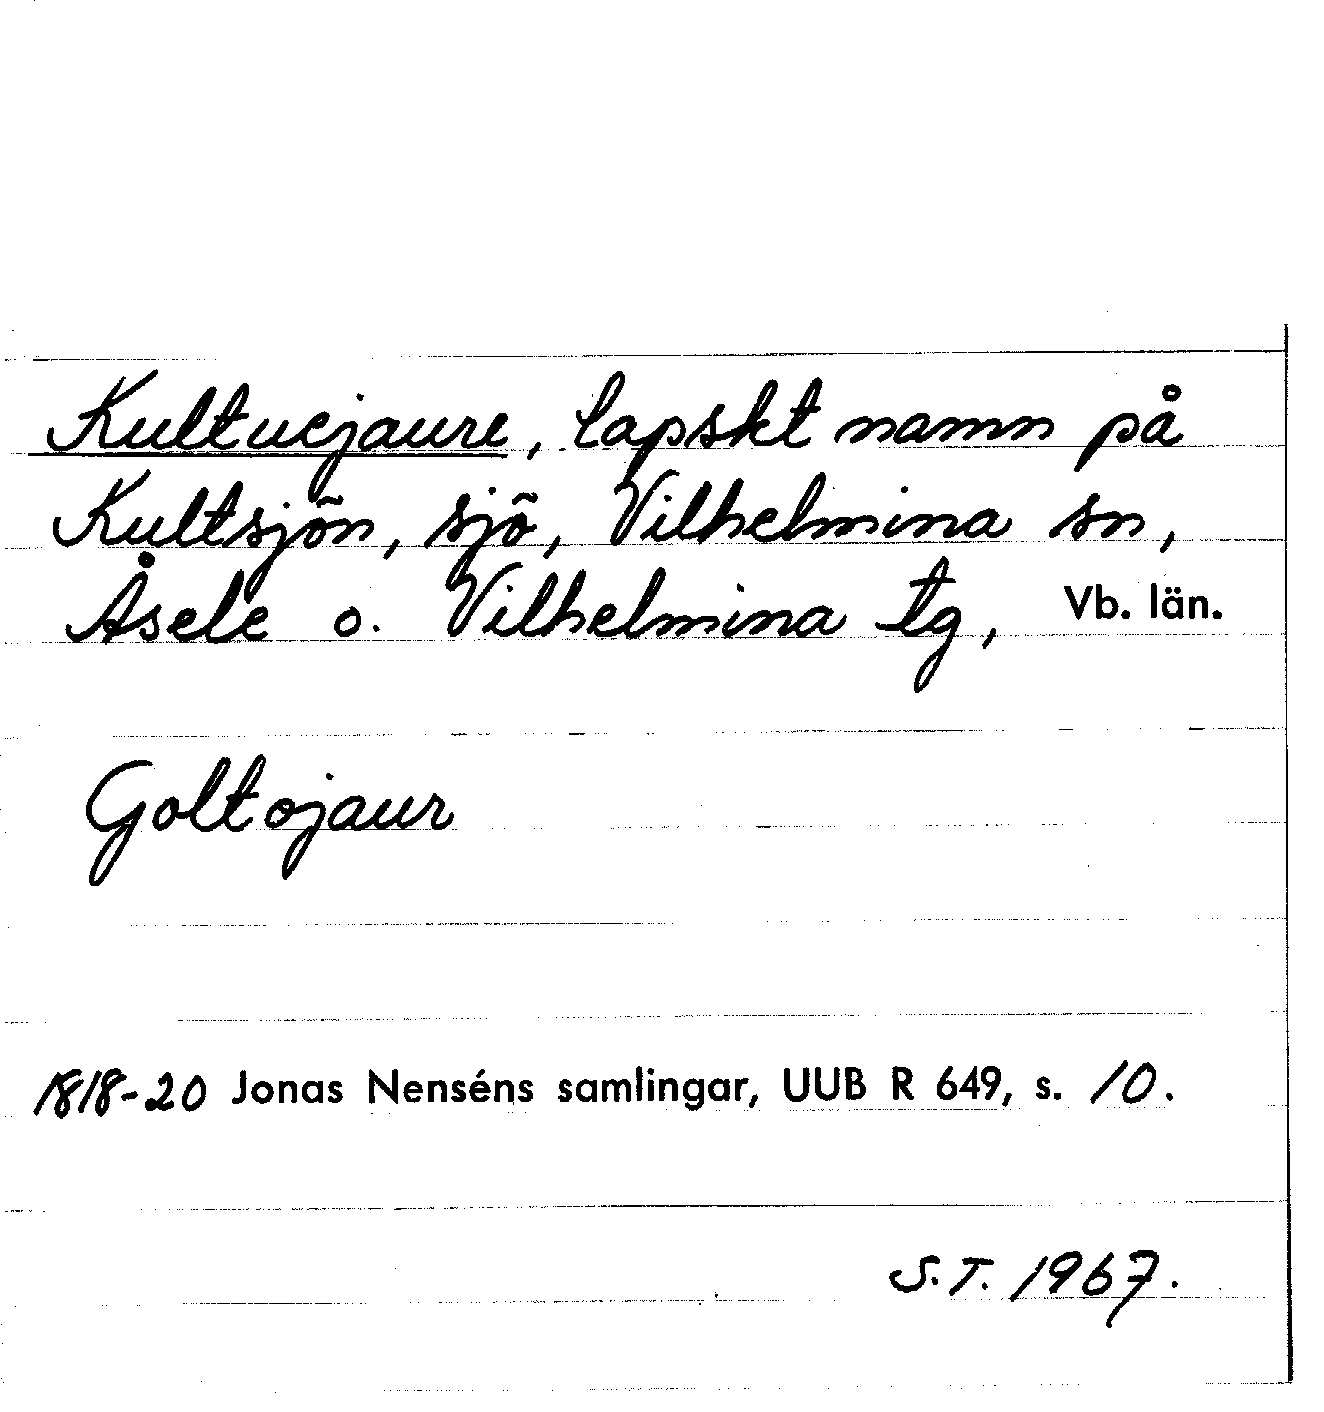 Kultuejaure, lapskt namn på
Kultsjön, sjö, Vilhelmina sn,
Åsele o. Vilhelmina tg, Vb. län.
Goltojaur
1818-20 Jonas Nenséns samlingar, UUB R 649, s. 10.
S.T. 1967.